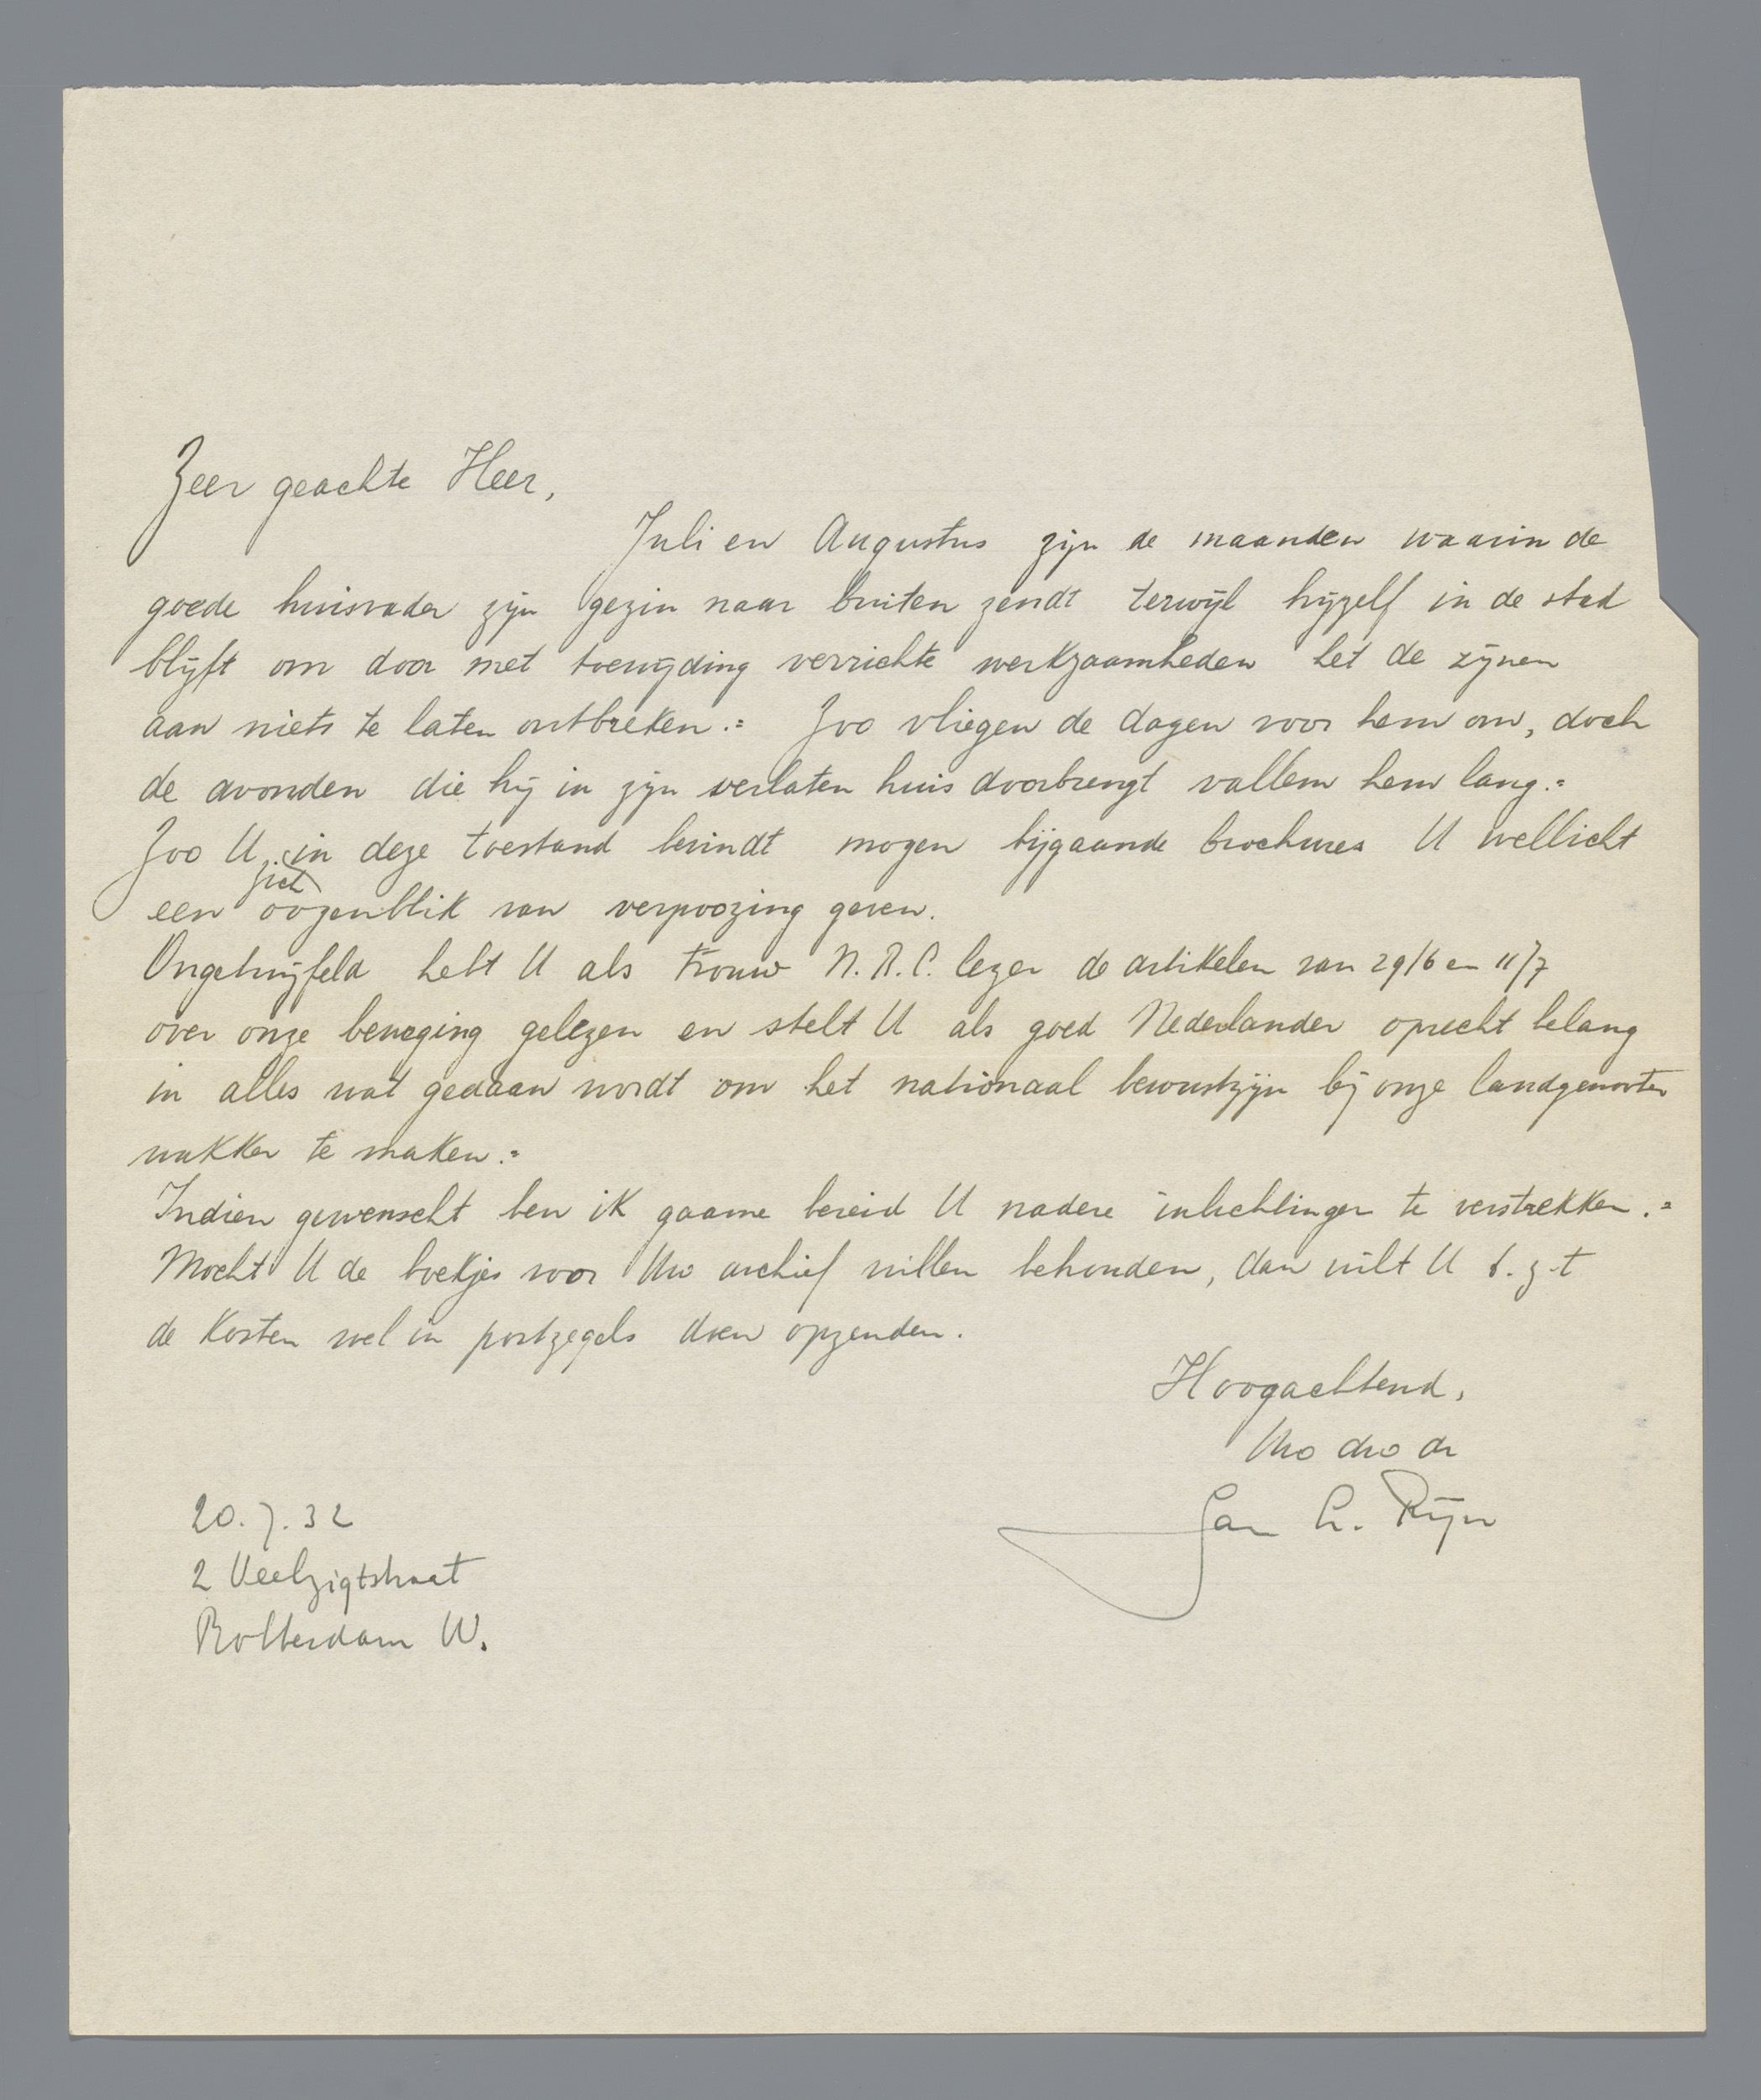 Zeer geachte Heer,
Juli en Augustus zijn de maanden waarin de
goede huisvader zijn gezin naar buiten zendt terwijl hijzelf in de stad
blijft om door met toewijding verrichte werkzaamheden het de zijnen
aan niets te laten ontbreken.= Zoo vliegen de dagen voor hem om, doch
de avonden die hij in zijn verlaten huis doorbrengt vallen hem lang.=
Zoo U zich in deze toestand bevindt mogen bijgaande brochures U wellicht
een oogenblik van verpoozing geven.
Ongetwijfeld hebt U als trouw N.R.C. lezer de artikelen van 29/6 en 11/7
over onze beweging gelezen en stelt U als goed Nederlander oprecht belang
in alles wat gedaan wordt om het nationaal bewustzijn bij onze landgenooten
wakker te maken.=
Indien gewenscht ben ik gaarne bereid U nadere inlichtingen te verstrekken.=
Mocht U de boekjes voor Uw archief willen behouden, dan wilt U t.z.t
de kosten wel in postzegels doen opzenden.
Hoogachtend,
Uw dw dr
Jan L. Rijn
20.7.32
2 Veelzigtstraat
Rotterdam W.